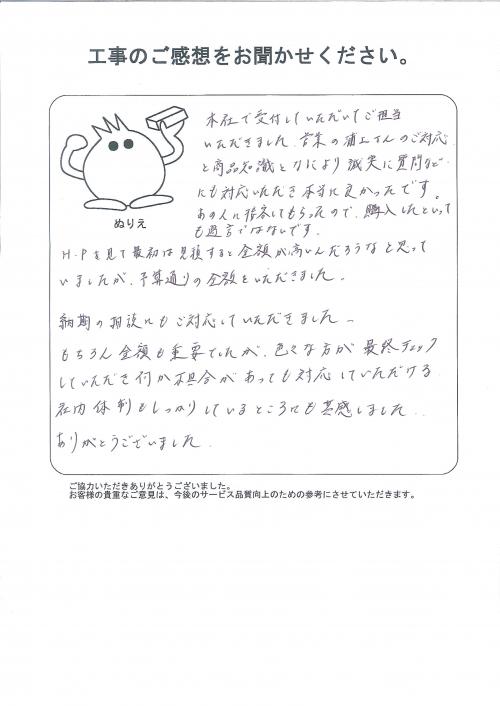 工事のご感想をお聞かせください。
本社で受付していただいてご担当
いただきました。営業の浦上さんのご対応
と商品知識となにより誠実に質問など
にも対応いただき本当に良かったです。
あの人に接客してもらったので、購入したといって
も過言ではないです。
ぬりえ
H・Pを見て最初は見積すると金額が高いんだろうなと思って
いましたが、予算通りの金額をいただきました。
納期の相談にもご対応していただきました。
もちろん金額も重要でしたが、色々な方が最終チェック
していただき何か不具合があっても対応していただける
社内体制もしっかりしているところにも共感しました。
ありがとうございました。
ご協力いただきありがとうございました。
お客様の貴重なご意見は、今後のサービス品質向上のための参考にさせていただきます。